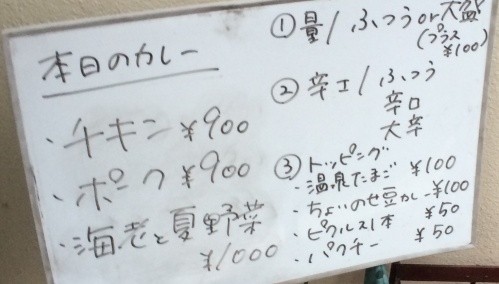 本日のカレー
・チキン ¥900
・ポーク ¥900
・海老と夏野菜
¥1000
①量/ふつうor大盛
(プラス
¥100)
②辛エ/ふつう
辛口
大辛
③トッピング
・温泉たまご ¥100
・ちょいのせ豆カレー ¥100
・ピクルス1本 ¥50
・パクチー ¥50